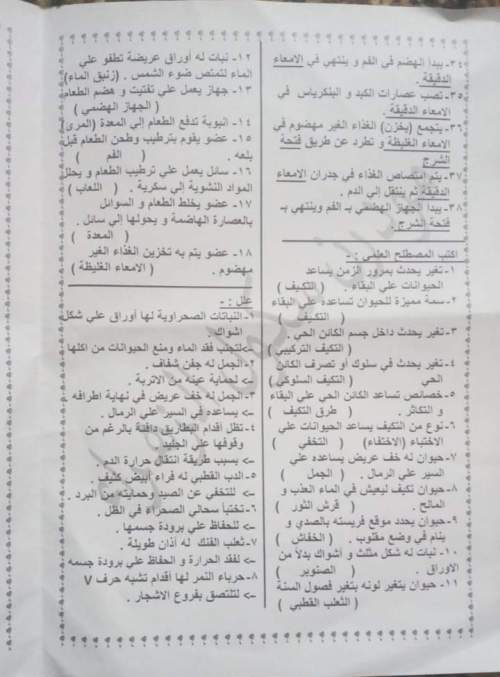 ٣٤- يبدأ الهضم في الفم و ينتهي في الامعاء
الدقيقة .
٣٥- تصب عصارات الكبد و البنكرياس في
الامعاء الدقيقة .
٣٦- يتجمع (يخزن) الغذاء الغير مهضوم في
الامعاء الغليظة و تطرد عن طريق فتحة
الشرج
٣٧- يتم امتصاص الغذاء في جدران الامعاء
الدقيقة ثم ينتقل إلي الدم .
٣٨- يبدأ الجهاز الهضمي بـ الفم وينتهي بـ
فتحة الشرج .
اكتب المصطلح العلمي : -
١- تغير يحدث بمرور الزمن يساعد
الحيوانات علي البقاء ( التكيف )
٢- سمة مميزة للحيوان تساعده علي البقاء
( التكيف )
٣- تغير يحدث داخل جسم الكائن الحي .
( التكيف التركيبي )
٤- تغير يحدث في سلوك أو تصرف الكائن
الحي ( التكيف السلوكي )
٥- خصائص تساعد الكائن الحي علي البقاء
و التكاثر . ( طرق التكيف )
٦- نوع من التكيف يساعد الحيوانات علي
الاختباء (الاختفاء) ( التخفي )
٧- حيوان له خف عريض يساعده علي
السير علي الرمال . ( الجمل )
٨- حيوان تكيف ليعيش في الماء العذب و
المالح . ( قرش الثور )
٩- حيوان يحدد موقع فريسته بالصدي و
ينام في وضع مقلوب . ( الخفاش )
١٠- نبات له شكل مثلث و أشواك بدلاً من
الاوراق . ( الصنوبر )
١١- حيوان يتغير لونه بتغير فصول السنة
( الثعلب القطبي )
١٢- نبات له أوراق عريضة تطفو علي
الماء لتمتص ضوء الشمس . (زنبق الماء)
١٣- جهاز يعمل علي تفتيت و هضم الطعام
( الجهاز الهضمي )
١٤- انبوبة تدفع الطعام إلي المعدة (المرئ)
١٥- عضو يقوم بترطيب وطحن الطعام قبل
بلعه . ( الفم )
١٦- سائل يعمل علي ترطيب الطعام و يحلل
المواد النشوية إلي سكرية . ( اللعاب )
١٧- عضو يخلط الطعام و السوائل
بالعصارة الهاضمة و يحولها إلي سائل .
( المعدة )
١٨- عضو يتم به تخزين الغذاء الغير
مهضوم . ( الامعاء الغليظة )
علل : -
١- النباتات الصحراوية لها أوراق علي شكل
اشواك .
<- لتجنب فقد الماء ومنع الحيوانات من اكلها
٢- الجمل له جفن شفاف .
<- لحماية عينه من الاتربة .
٣- الجمل له خف عريض في نهاية اطرافه .
<- يساعده في السير علي الرمال .
٤- تظل اقدام البطاريق دافئة بالرغم من
وقوفها علي الجليد .
<- بسبب طريقة انتقال حرارة الدم .
٥- الدب القطبي له فراء أبيض كثيف .
<- للتخفي عن الصيد وحمايته من البرد .
٦- تختبأ سحالي الصحراء في الظل .
<- للحفاظ علي برودة جسمها .
٧- ثعلب الفنك له أذان طويلة .
<- لفقد الحرارة و الحفاظ علي برودة جسمه
٨- حرباء النمر لها أقدام تشبه حرف V
<- لتلتصق بفروع الاشجار .